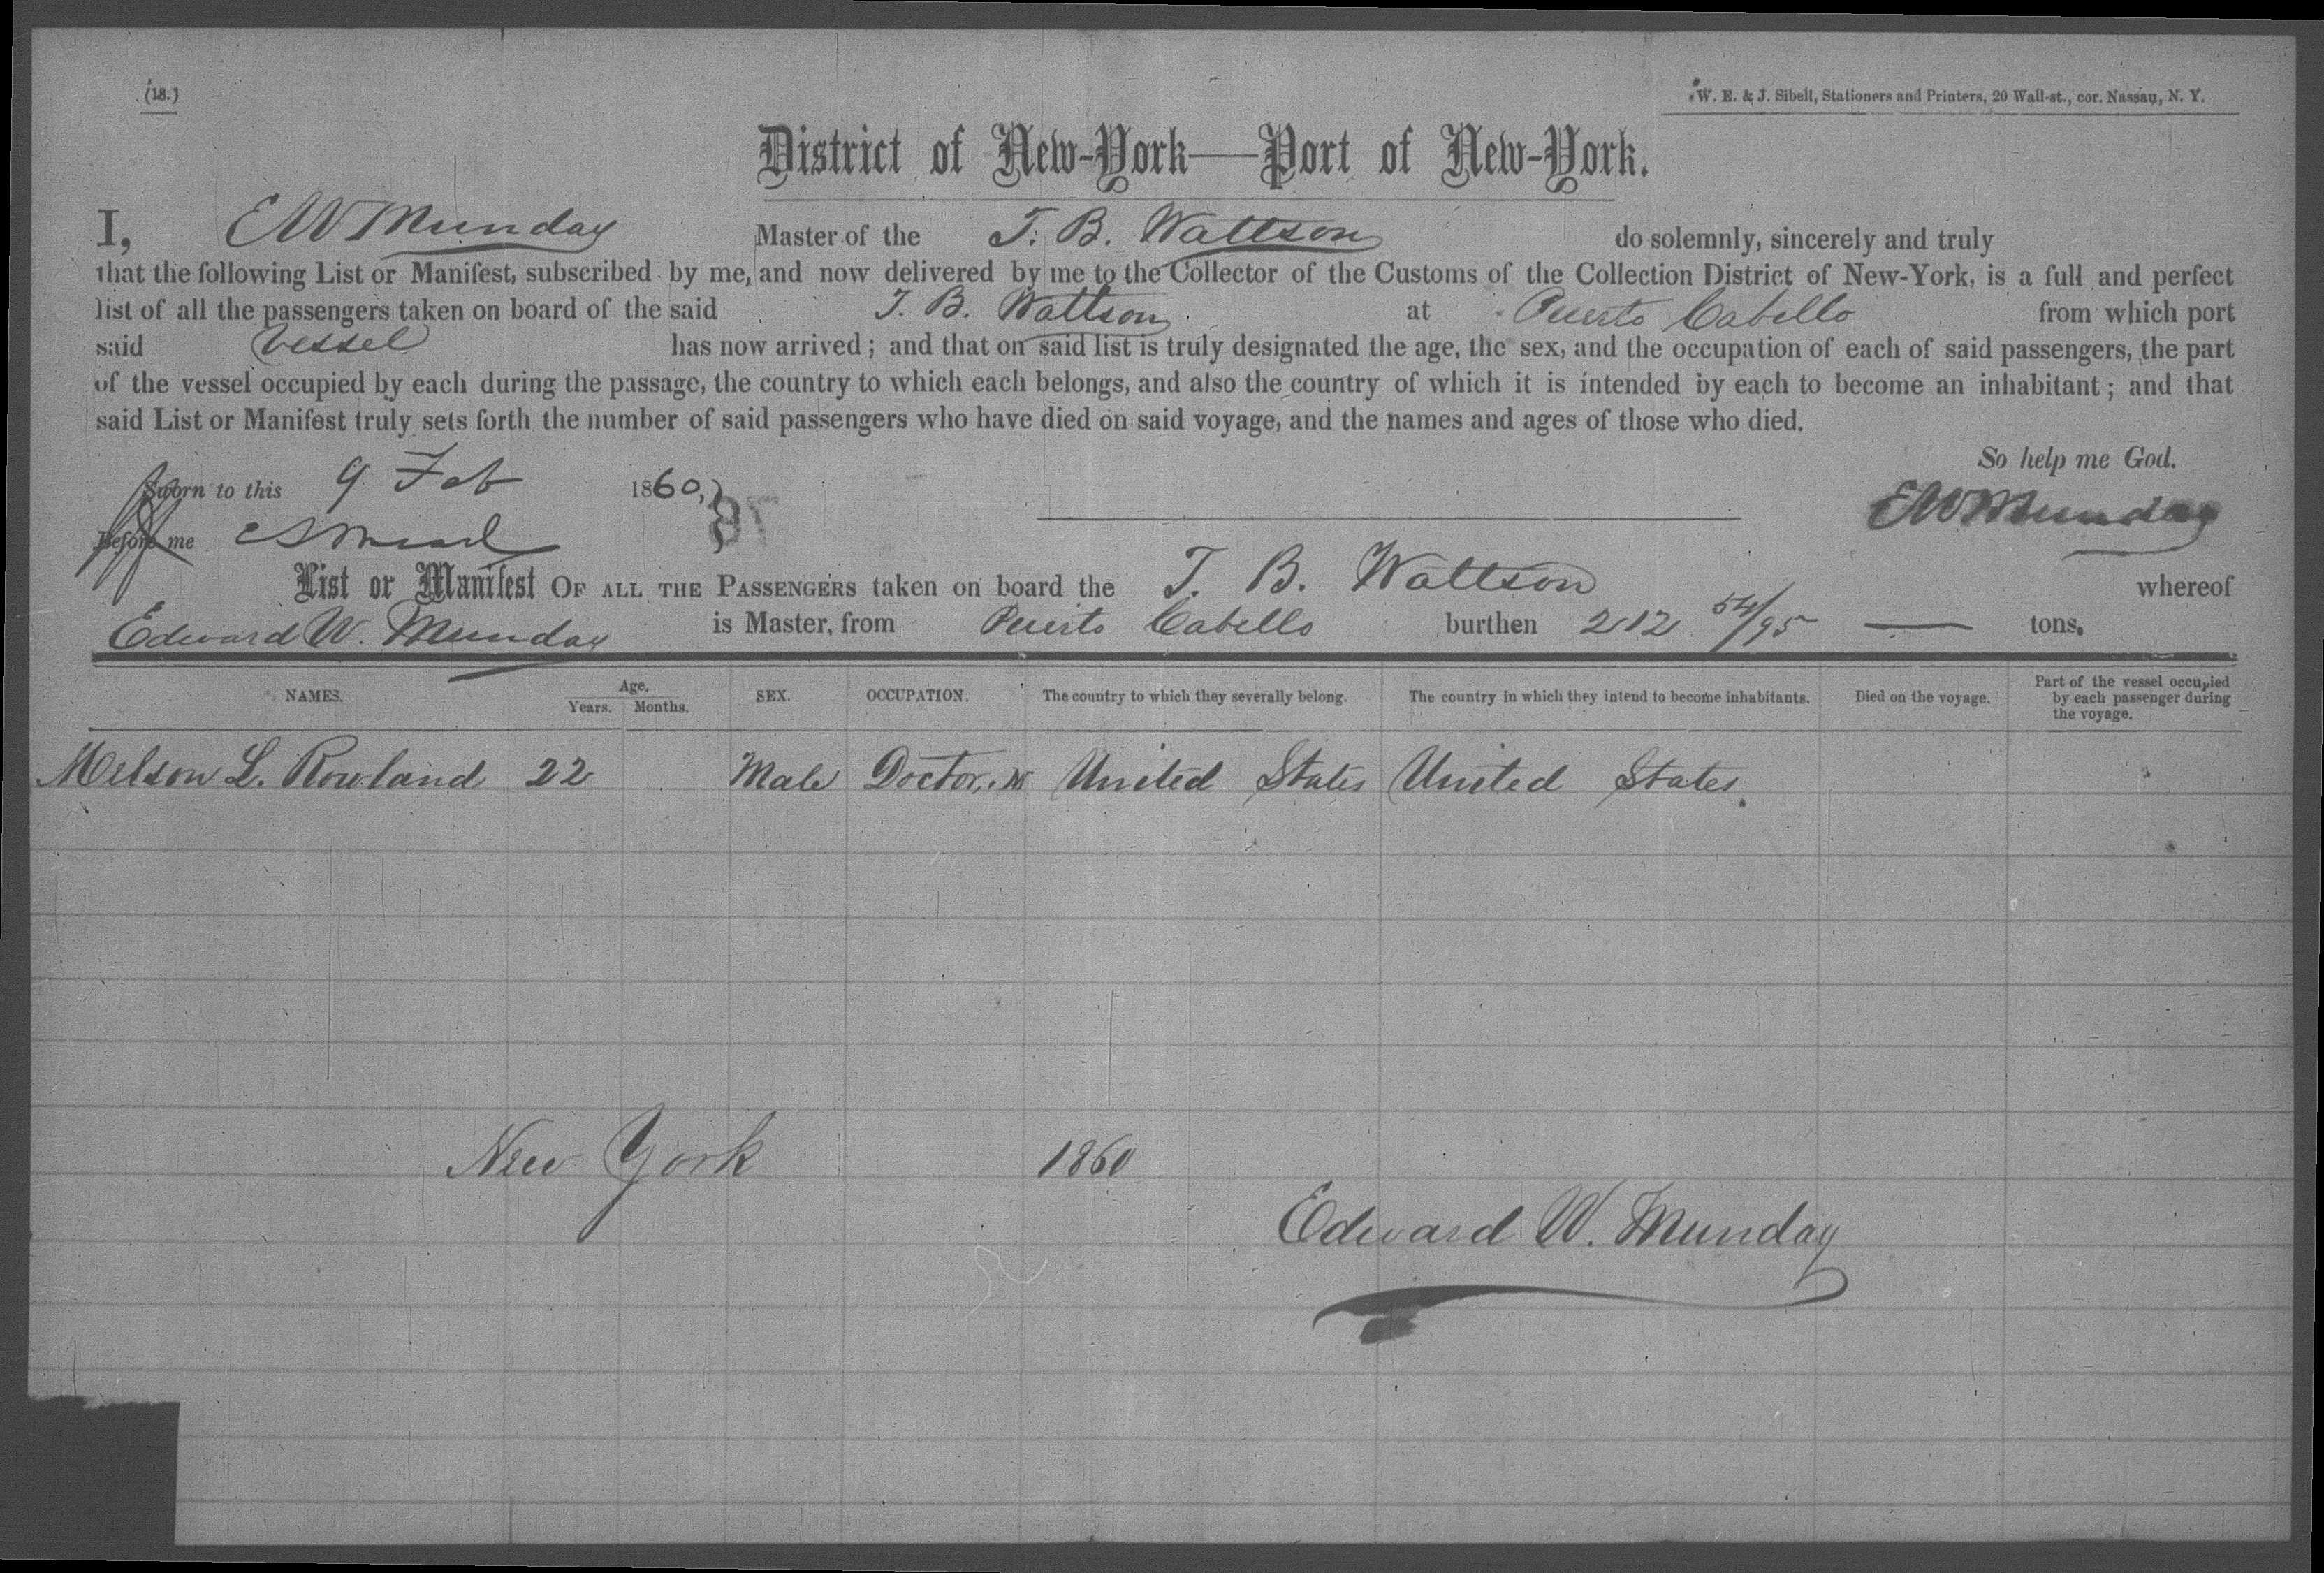 (18.)
W. E. & J. Sibell, Stationers and Printers, 20 Wall-st., cor. Nassau, N. Y.
District of New-York—Port of New-York.
I, E W Munday Master of the T. B. Wattson do solemnly, sincerely and truly
that the following List or Manifest, subscribed by me, and now delivered by me to the Collector of the Customs of the Collection District of New-York, is a full and perfect
list of all the passengers taken on board of the said T. B. Wattson at Puerto Cabello from which port
said Vessel has now arrived; and that on said list is truly designated the age, the sex, and the occupation of each of said passengers, the part
of the vessel occupied by each during the passage, the country to which each belongs, and also the country of which it is intended by each to become an inhabitant; and that
said List or Manifest truly sets forth the number of said passengers who have died on said voyage, and the names and ages of those who died.
So help me God.
Sworn to this 9 Feb 1860,
E W Munday
Before me
List or Manifest OF ALL THE PASSENGERS taken on board the T. B. Wattson whereof
Edward W. Munday is Master, from Puerto Cabello burthen 212 54/95 — tons.
NAMES. Age. Years. Months. SEX. OCCUPATION. The country to which they severally belong. The country in which they intend to become inhabitants. Died on the voyage. Part of the vessel occupied by each passenger during the voyage.
L. Rowland 22 Male Doctor United States United States.
New York 1860
Edward W. Munday